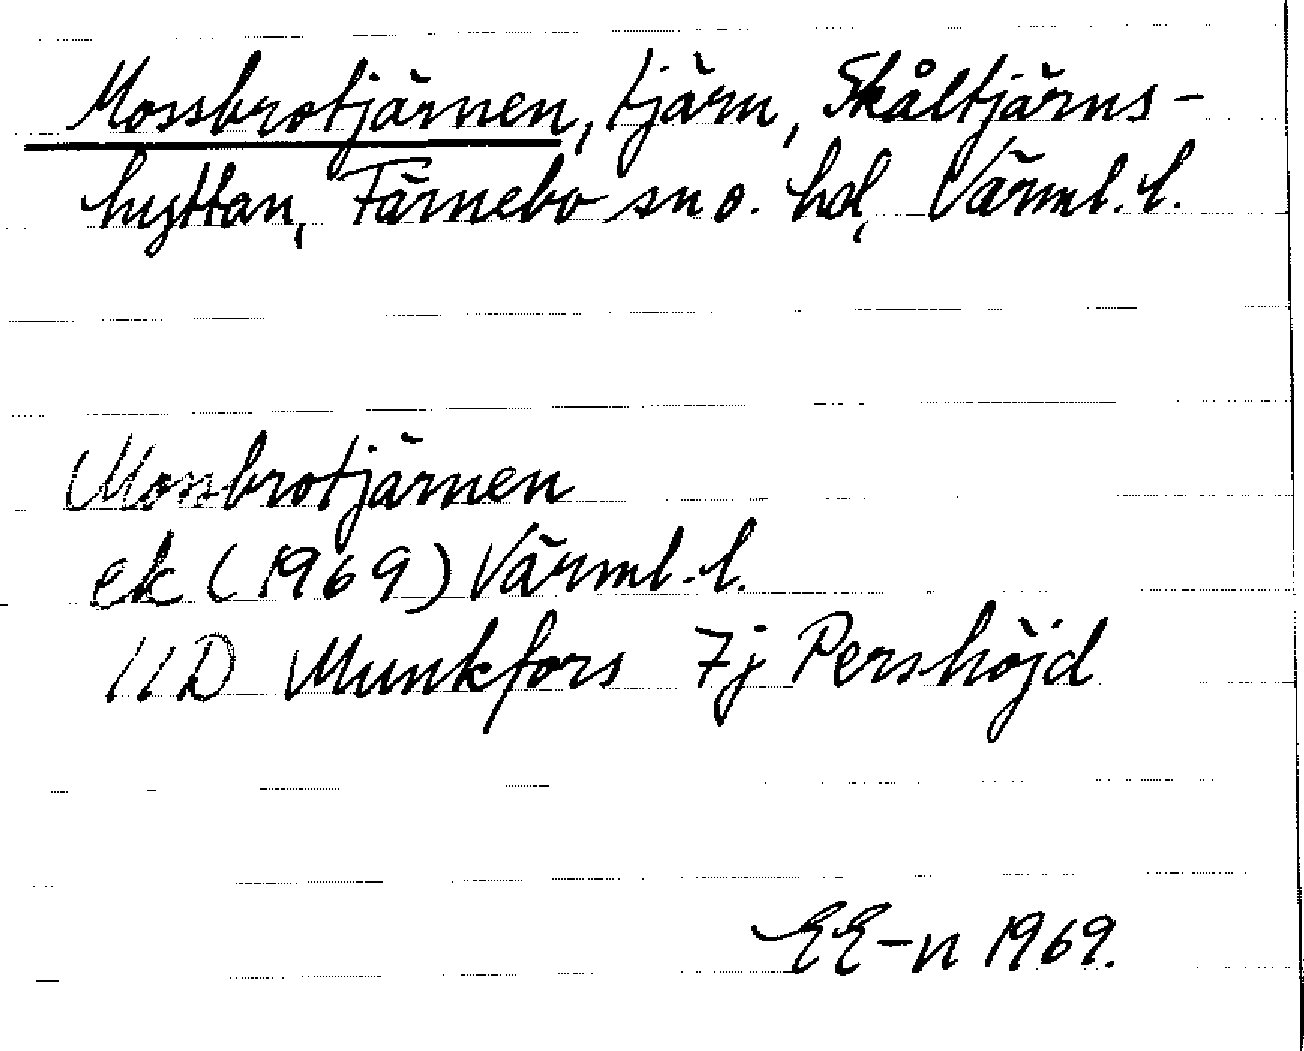 Mossbrotjärnen, tjärn, Skåltjärns-
hyttan, Färnebo sn o. hd, Värml. l.
Mossbrotjärnen
ek (1969) Värml. l.
11D Munkfors 7j Pershöjd
EE-n 1969.